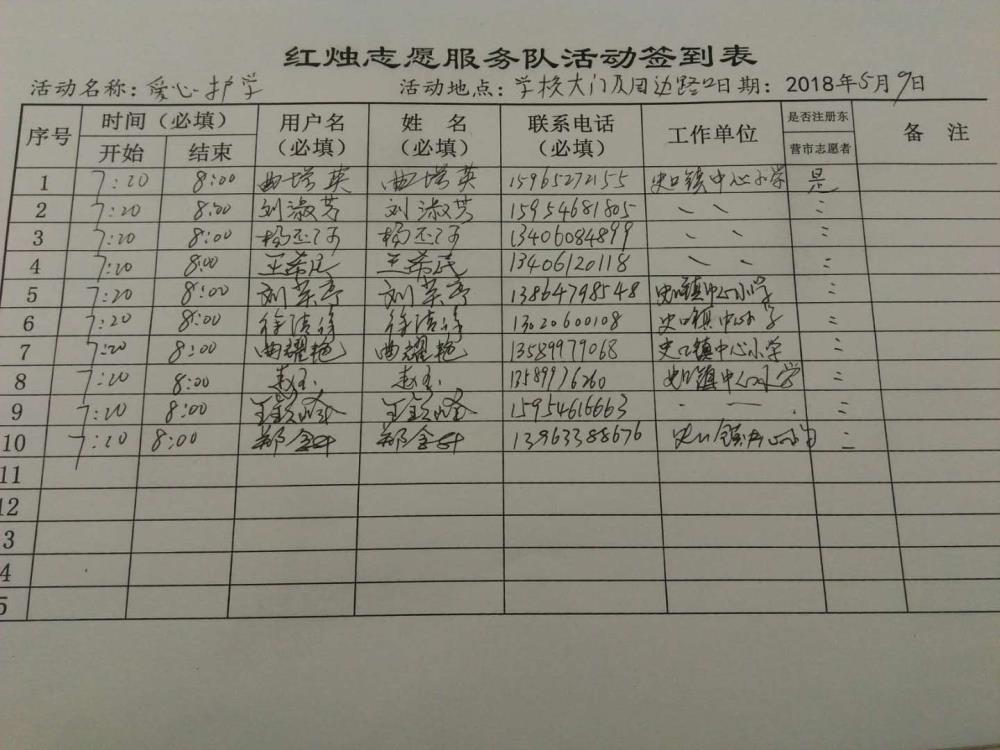 红烛志愿服务队活动签到表
活动名称：爱心护学 活动地点：学校大门及周边路口 日期：2018年5月9日
序号 时间（必填） 用户名（必填） 姓名（必填） 联系电话（必填） 工作单位 是否注册东营市志愿者 备注
开始 结束
1 7:20 8:00 曲增英 曲增英 15965272155 史口镇中心小学 是
2 7:20 8:00 刘淑芳 刘淑芳 15954681805 〃 〃
3 7:20 8:00 13406084899 〃 〃
4 7:20 8:00 王荣民 王荣民 13406120118 〃 〃
5 7:20 8:00 刘荣亭 刘荣亭 13864798548 史口镇中心小学 〃
6 7:20 8:00 13020600108 史口镇中心小学 〃
7 7:20 8:00 曲耀艳 曲耀艳 13589979068 史口镇中心小学 〃
8 7:20 8:00 赵玉 赵玉 13589976260 史口镇中心小学 〃
9 7:20 8:00 15954616663 〃
10 7:20 8:00 13963388676 〃
11
12
3
4
5